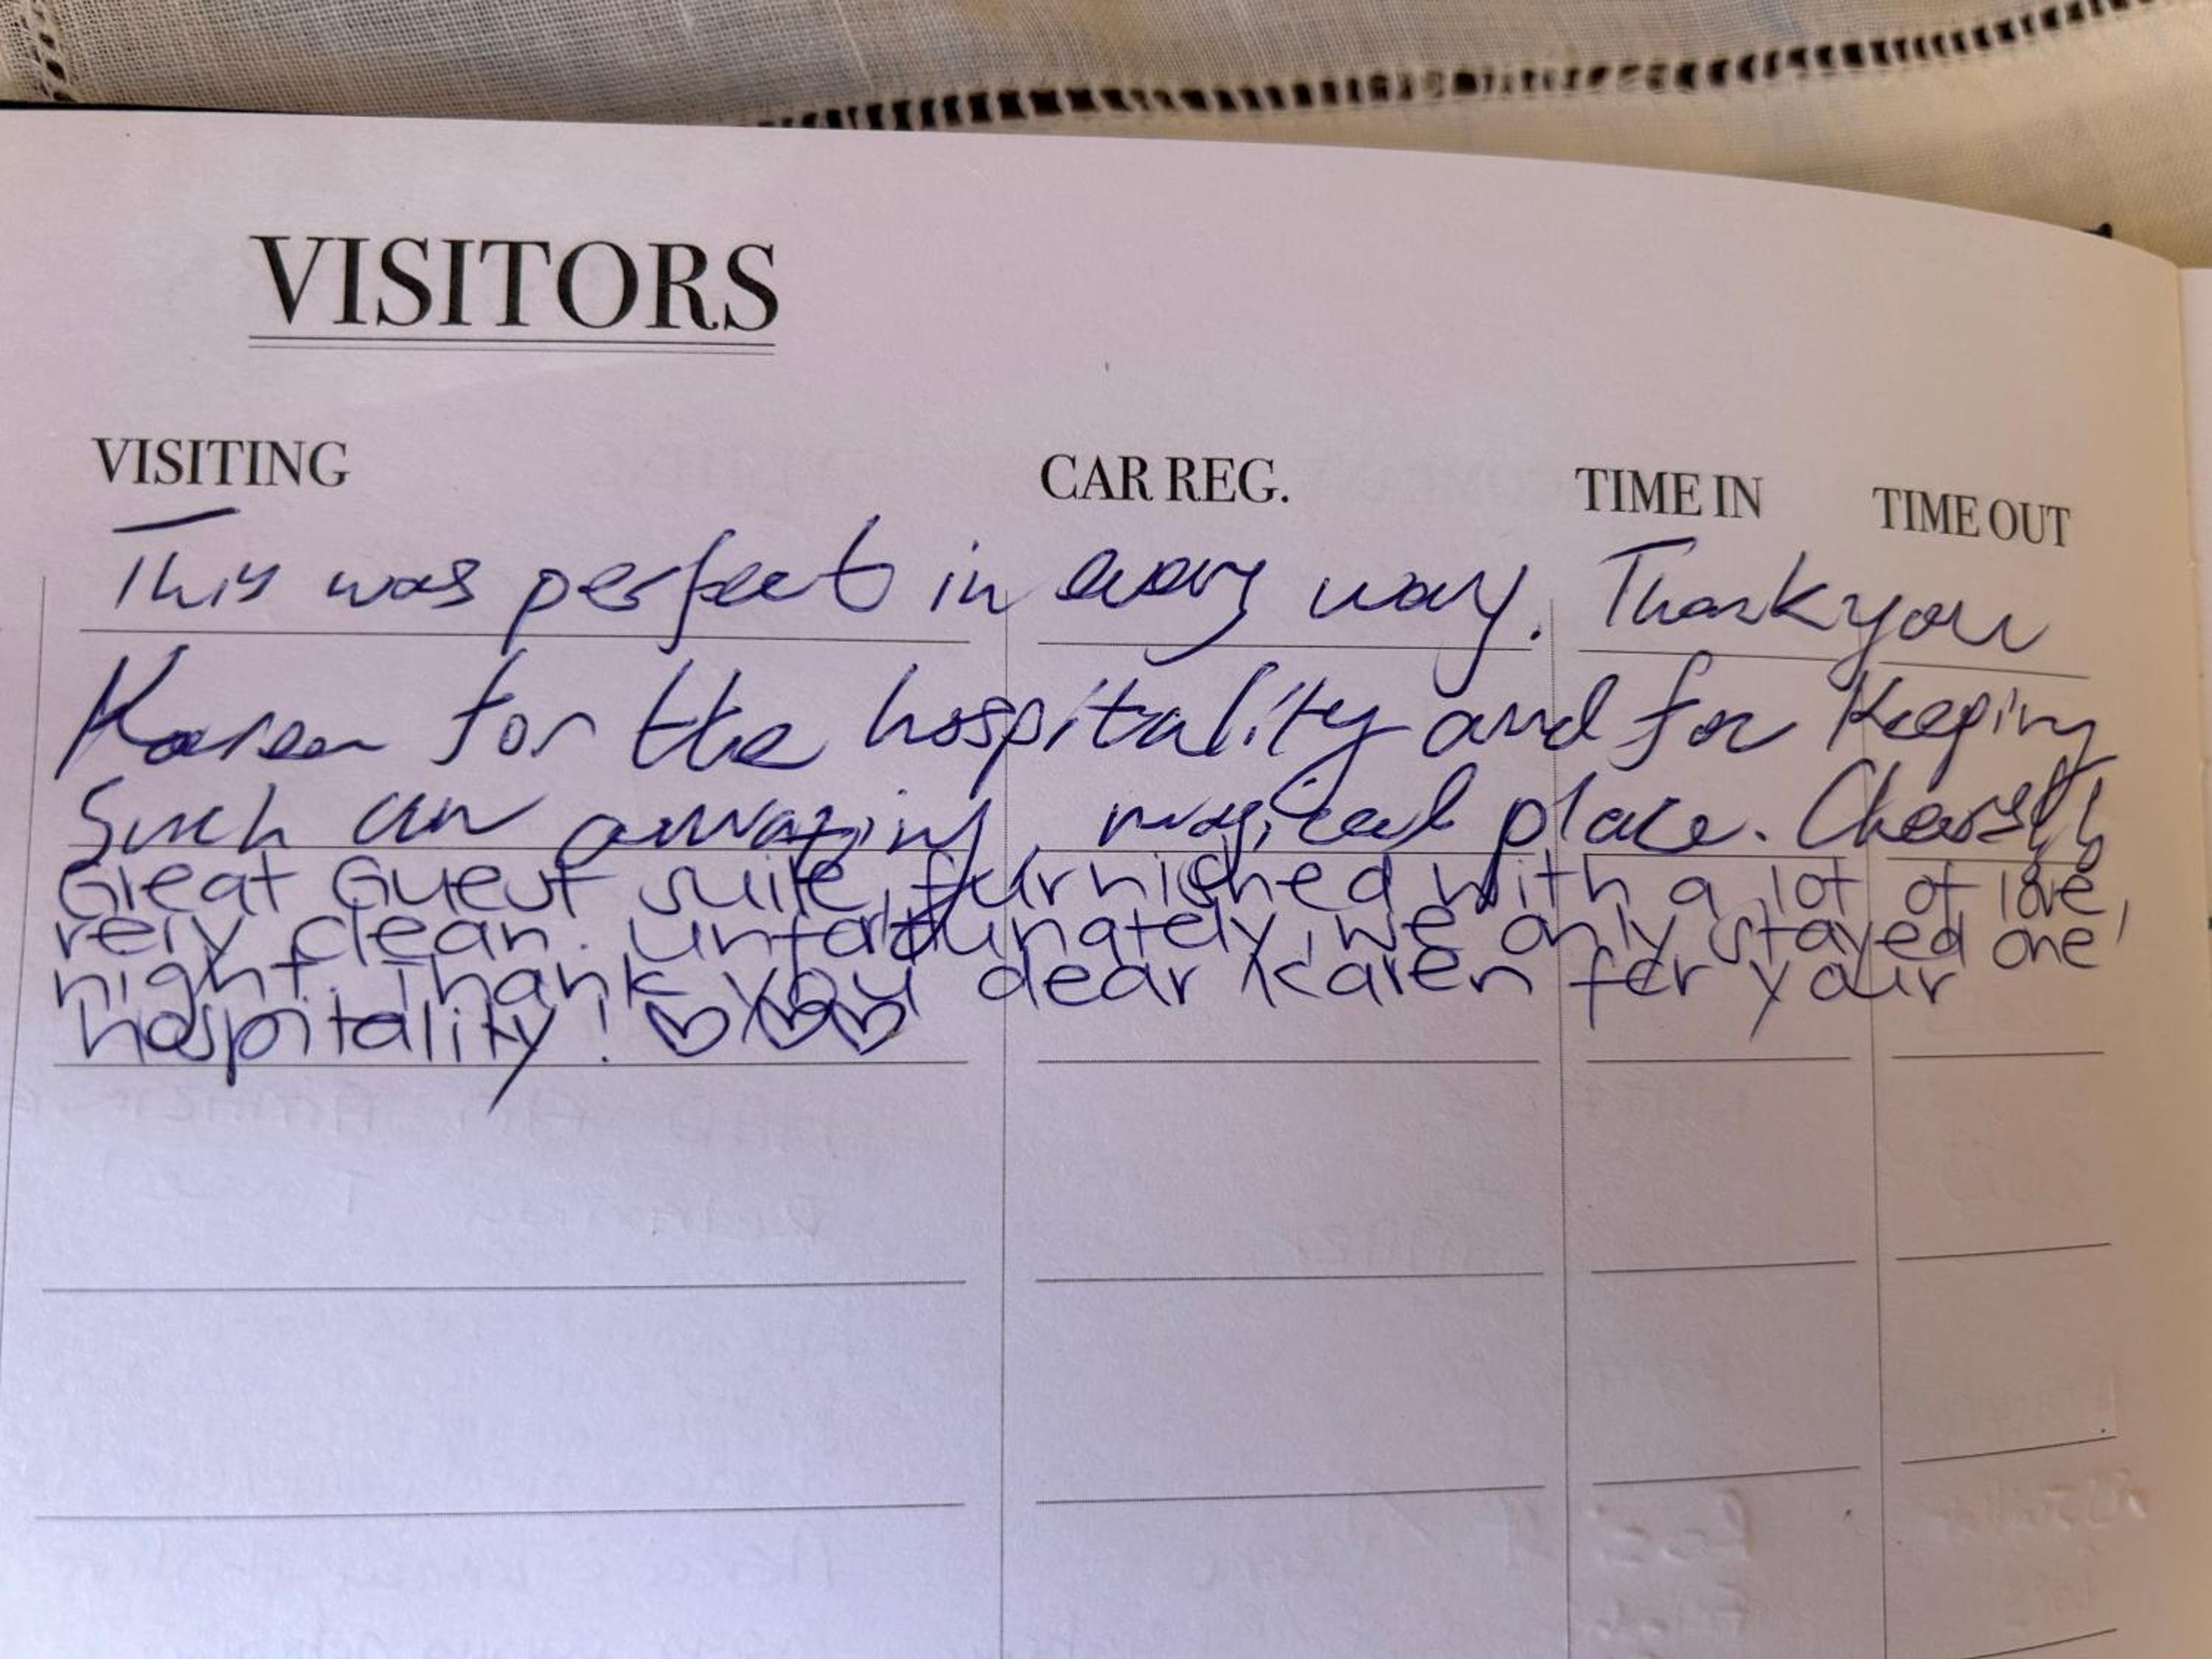 VISITORS
VISITING CAR REG. TIME IN TIME OUT
This was perfect in every way. Thank you
Karen for the hospitality and for keeping
Such an amazing, magical place. Cheers!!
Great Guest suite, furnished with a lot of love,
very clean. Unfortunately, we only stayed one
night. Thank you dear Karen for your
hospitality! ♡♡♡